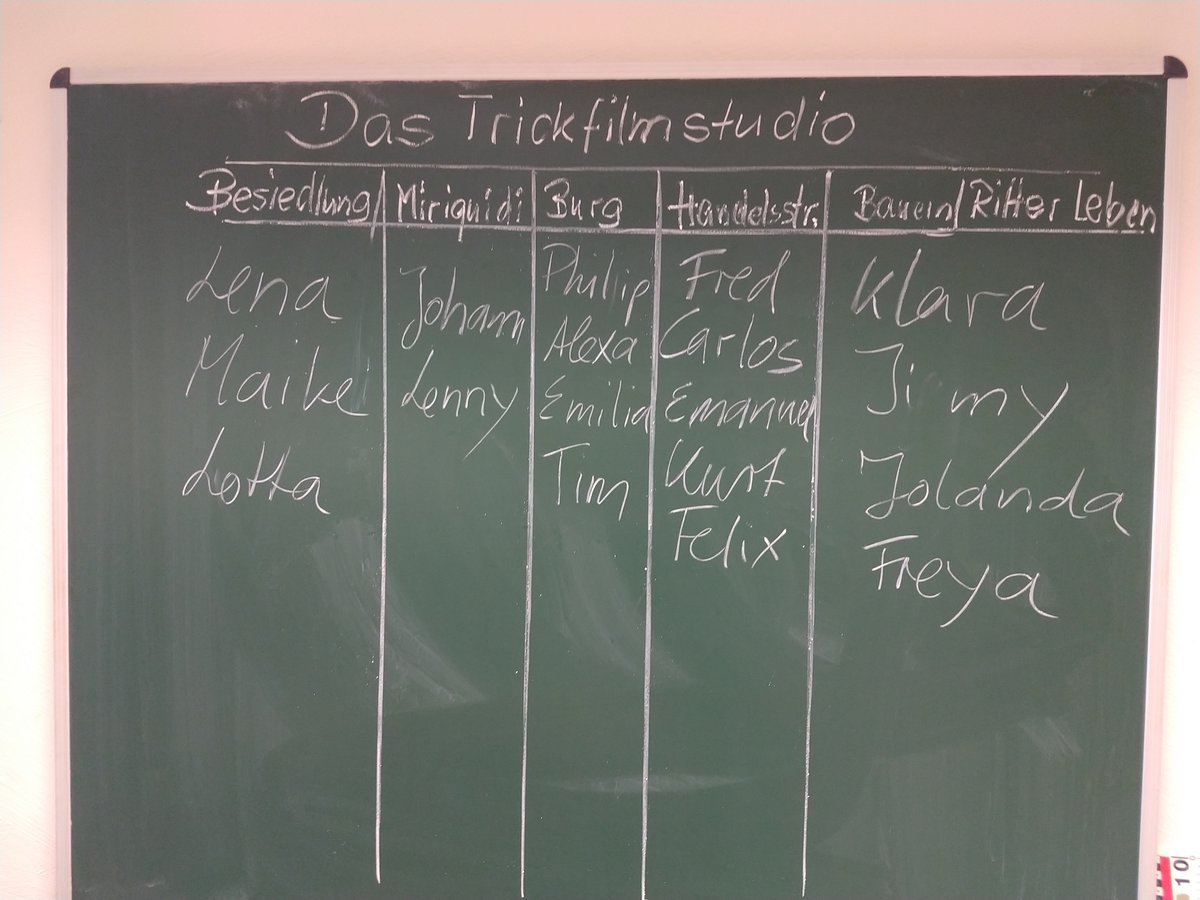 Das Trickfilmstudio
Besiedlung Miriquidi Burg Handelsstr. Bauern/Ritter Leben
Lena Johann Phillip Fred Klara
Maike Lenny Alexa Carlos Jimy
Lotta Emilia Emanuel Jolanda
Tim Kurt Freya
Felix
10